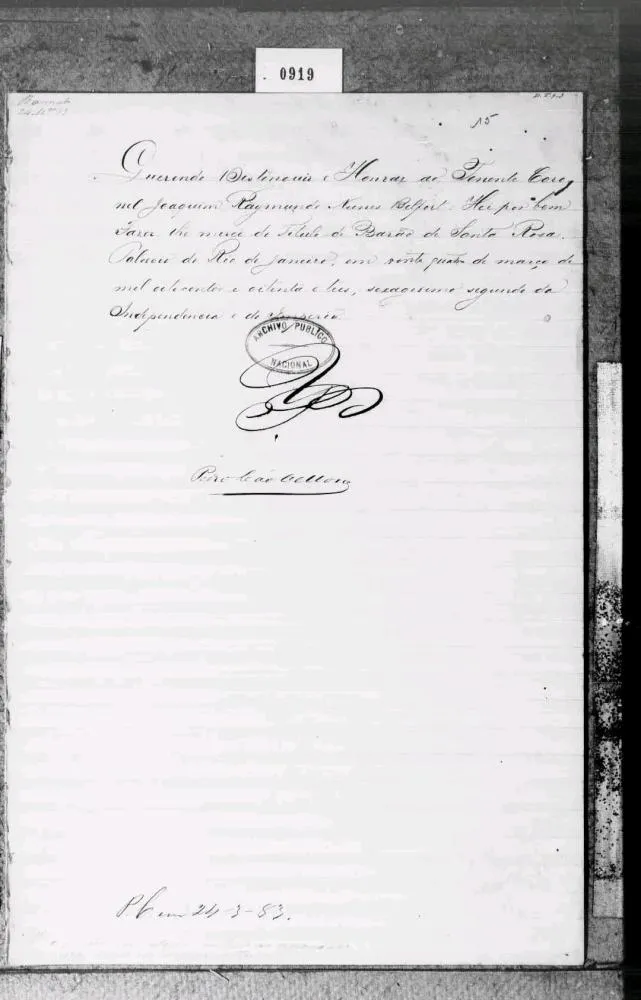 0919
15
Querendo Destinguir e Honrar ao Tenente Coro
nel Joaquim Raymundo Nunes Belfort: Hei por bem
Fazer-lhe mercê do Titulo de Barão de Santa Rosa.
Palacio do Rio de Janeiro, em vinte quatro de março de
mil oitocentos e oitenta e tres, sexagesimo segundo da
Independencia e do Imperio.
ARCHIVO PUBLICO
NACIONAL
Pedro Leão Velloso
P. C em 24-3-83.